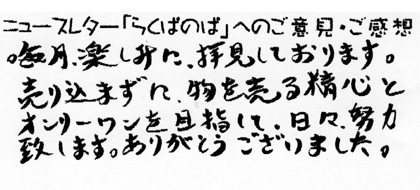 ニュースレター「らくぱのぱ」へのご意見・ご感想
。毎月、楽しみに、拝見しております。
売り込まずに、物を売る精心と
オンリーワンを目指して、日々、努力
致します。ありがとうございました。